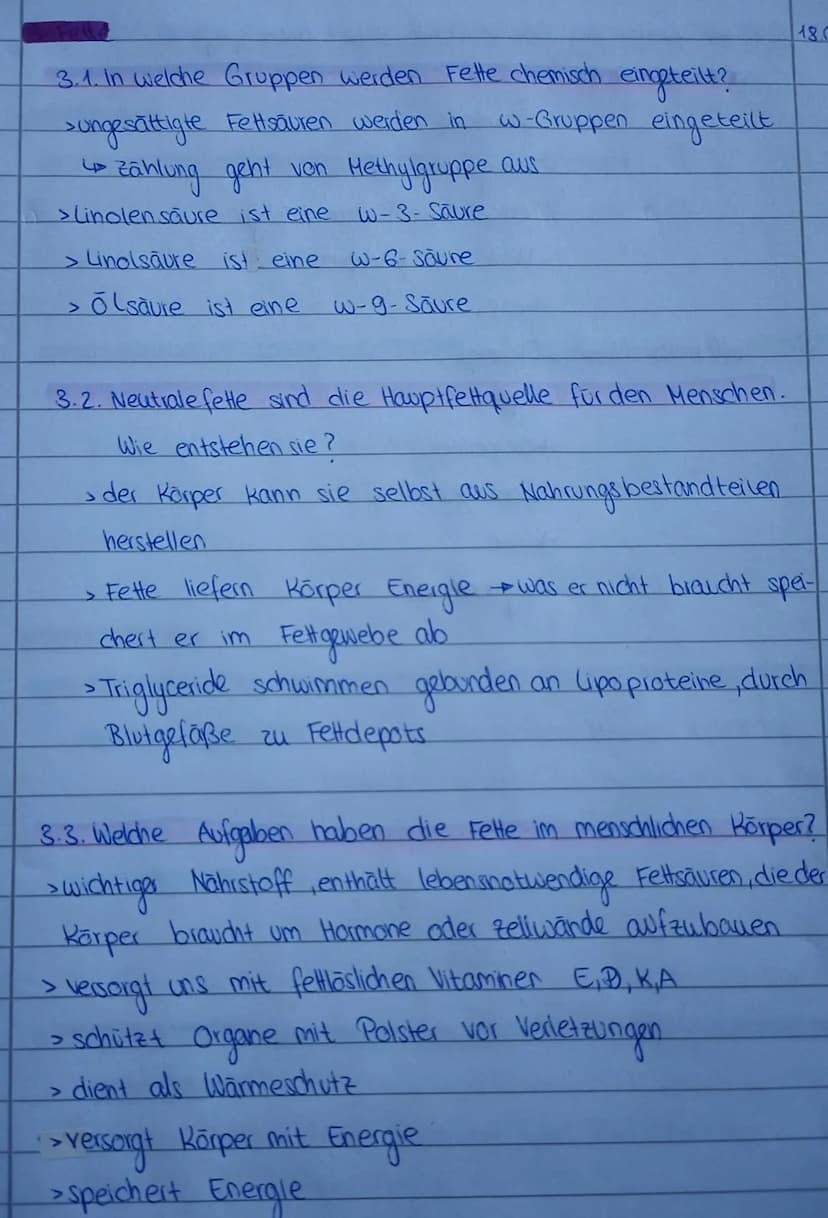 Fette
180
3.1. In welche Gruppen werden Fette chemisch eingeteilt?
>ungesättigte Fettsäuren werden in ω-Gruppen eingeteilt
↳ Zählung geht von Methylgruppe aus
>Linolensäure ist eine ω-3-Säure
> Linolsäure ist eine ω-6-Säure
> Ölsäure ist eine ω-9-Säure
3.2. Neutralefette sind die Hauptfettquelle für den Menschen.
Wie entstehen sie?
> der Körper kann sie selbst aus Nahrungsbestandteilen
herstellen
> Fette liefern Körper Energie → was er nicht braucht spei-
chert er im Fettgewebe ab
> Triglyceride schwimmen gebunden an Lipoproteine, durch
Blutgefäße zu Fettdepots
3.3. Welche Aufgaben haben die Fette im menschlichen Körper?
>wichtiger Nährstoff, enthält lebensnotwendige Fettsäuren, die der
Körper braucht um Hormone oder Zellwände aufzubauen
> versorgt uns mit fettlöslichen Vitaminen E, D, K, A
> schützt Organe mit Polster vor Verletzungen
> dient als Wärmeschutz
>versorgt Körper mit Energie
>speichert Energie